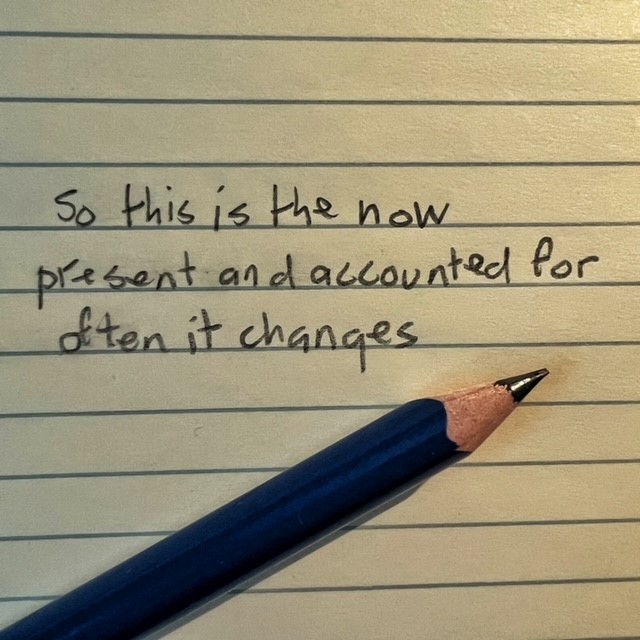 So this is the now
present and accounted for
often it changes